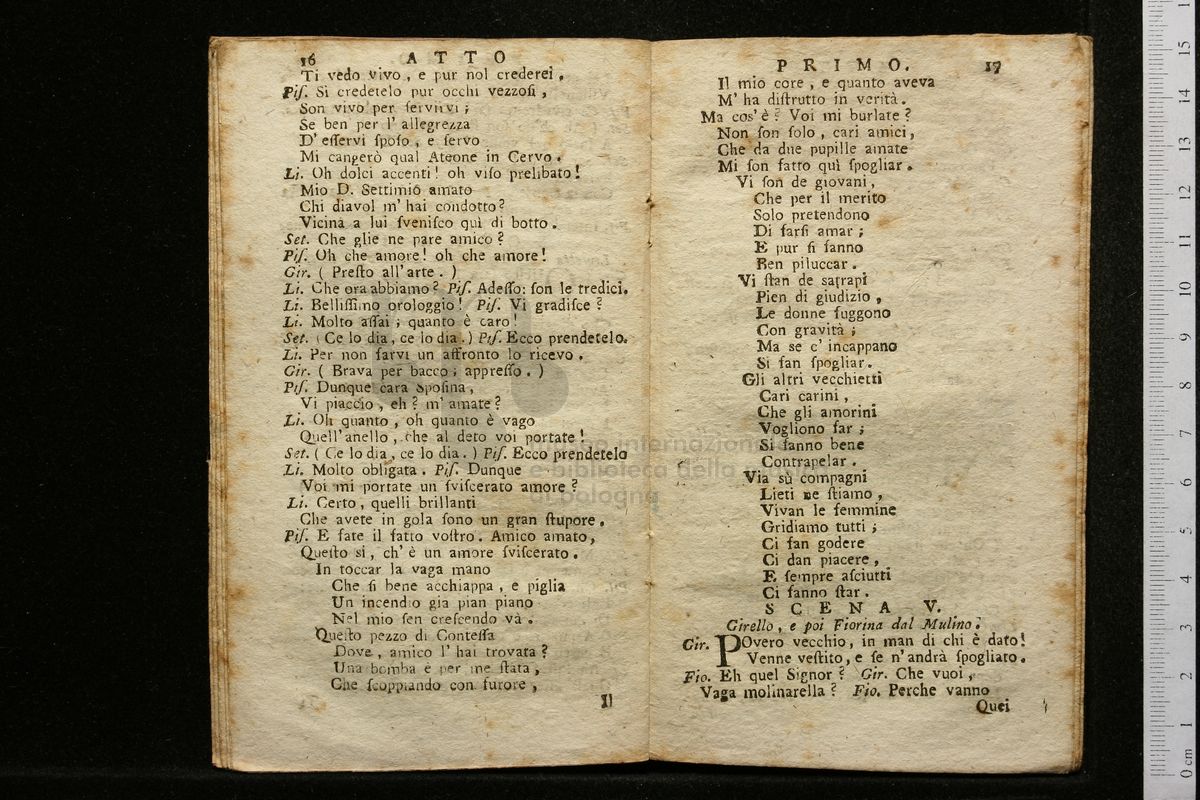 16 ATTO
Ti vedo vivo, e pur nol crederei.
Piſ. Si credetelo pur occhi vezzoſi,
Son vivo per ſervirvi;
Se ben per l'allegrezza
D'eſſervi ſpoſo, e ſervo
Mi cangerò qual Ateone in Cervo.
Li. Oh dolci accenti! oh viſo prelibato!
Mio D. Settimio amato
Chi diavol m'hai condotto?
Vicina a lui ſveniſco quì di botto.
Set. Che glie ne pare amico?
Piſ. Oh che amore! oh che amore!
Gir. (Preſto all'arte.)
Li. Che ora abbiamo? Piſ. Adeſſo: ſon le tredici.
Li. Belliſſimo orologgio! Piſ. Vi gradiſce?
Li. Molto aſſai; quanto è caro!
Set. (Ce lo dia, ce lo dia.) Piſ. Ecco prendetelo.
Li. Per non farvi un affronto lo ricevo.
Gir. (Brava per bacco; appreſſo.)
Piſ. Dunque cara Spoſina,
Vi piaccio, eh? m'amate?
Li. Oh quanto, oh quanto è vago
Quell'anello, che al deto voi portate!
Set. (Ce lo dia, ce lo dia.) Piſ. Ecco prendetelo
Li. Molto obligata. Piſ. Dunque
Voi mi portate un ſviſcerato amore?
Li. Certo, quelli brillanti
Che avete in gola ſono un gran ſtupore.
Piſ. E fate il fatto voſtro. Amico amato,
Queſto si, ch'è un amore ſviſcerato.
In toccar la vaga mano
Che ſi bene acchiappa, e piglia
Un incendio gia pian piano
Nel mio ſen creſcendo và.
Queſto pezzo di Conteſſa
Dove, amico l'hai trovata?
Una bomba e per me ſtata,
Che ſcoppiando con furore,
Il
PRIMO. 17
Il mio core, e quanto aveva
M'ha diſtrutto in verità.
Ma cos'è? Voi mi burlate?
Non ſon ſolo, cari amici,
Che da due pupille amate
Mi ſon fatto quì ſpogliar.
Vi ſon de giovani,
Che per il merito
Solo pretendono
Di farſi amar;
E pur ſi fanno
Ben piluccar.
Vi ſtan de satrapi
Pien di giudizio,
Le donne fuggono
Con gravità;
Ma se c'incappano
Si fan ſpogliar.
Gli altri vecchietti
Cari carini,
Che gli amorini
Vogliono far;
Si fanno bene
Contrapelar.
Via sù compagni
Lieti ne ſtiamo,
Vivan le femmine
Gridiamo tutti;
Ci fan godere
Ci dan piacere,
E ſempre aſciutti
Ci fanno ſtar.
SCENA V.
Girello, e poi Fiorina dal Mulino.
Gir. POvero vecchio, in man di chi è dato!
Venne veſtito, e ſe n'andrà ſpogliato.
Fio. Eh quel Signor? Gir. Che vuoi,
Vaga molinarella? Fio. Perche vanno
Quei
museo internazionale
e biblioteca della musica
di bologna
0 cm 1 2 3 4 5 6 7 8 9 10 11 12 13 14 15